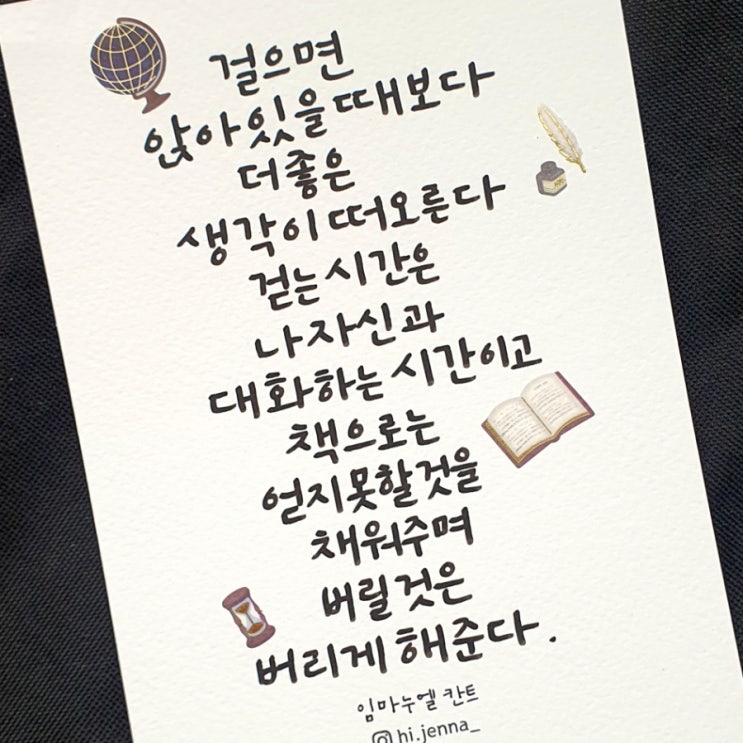 걸으면
앉아있을때보다
더좋은
생각이떠오른다
걷는시간은
나자신과
대화하는시간이고
책으로는
얻지못할것을
채워주며
버릴것은
버리게해준다.
임마누엘 칸트
hi.jenna_